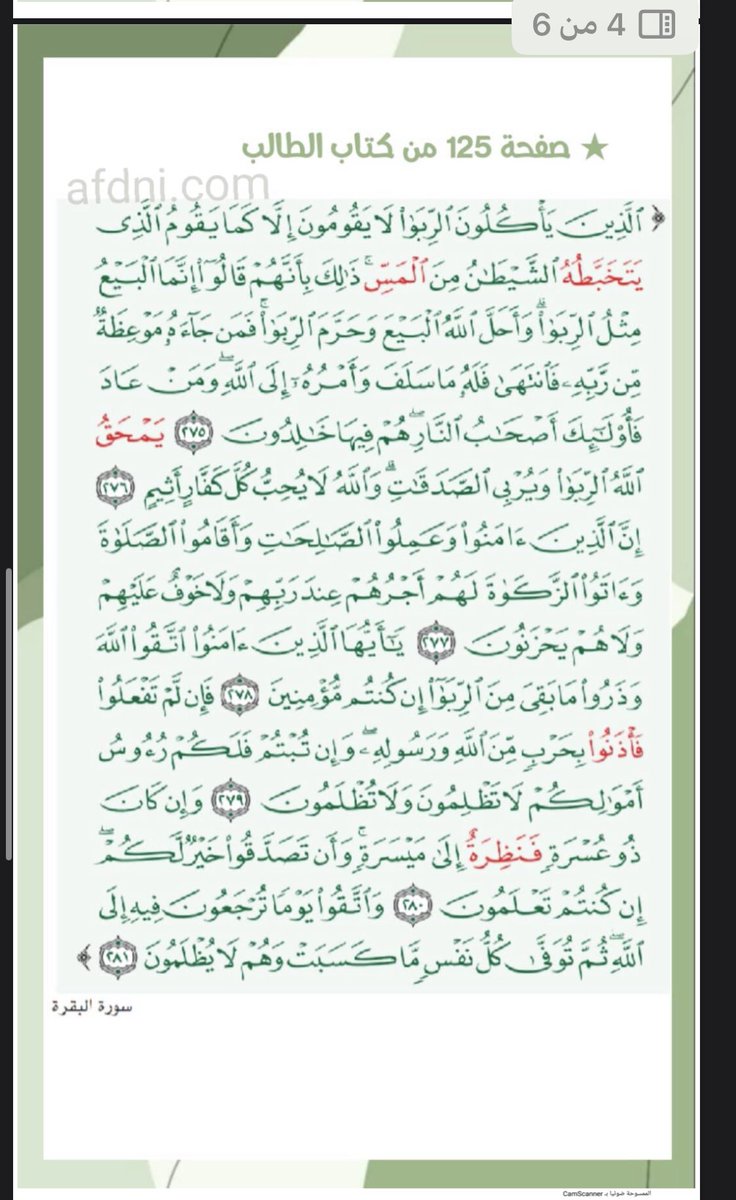 4 من 6
★ صفحة 125 من كتاب الطالب
afdni.com
﴿ ٱلَّذِينَ يَأۡكُلُونَ ٱلرِّبَوٰاْ لَا يَقُومُونَ إِلَّا كَمَا يَقُومُ ٱلَّذِي
يَتَخَبَّطُهُ ٱلشَّيۡطَٰنُ مِنَ ٱلۡمَسِّۚ ذَٰلِكَ بِأَنَّهُمۡ قَالُوٓاْ إِنَّمَا ٱلۡبَيۡعُ
مِثۡلُ ٱلرِّبَوٰاْۗ وَأَحَلَّ ٱللَّهُ ٱلۡبَيۡعَ وَحَرَّمَ ٱلرِّبَوٰاْۚ فَمَن جَآءَهُۥ مَوۡعِظَةٞ
مِّن رَّبِّهِۦ فَٱنتَهَىٰ فَلَهُۥ مَا سَلَفَ وَأَمۡرُهُۥٓ إِلَى ٱللَّهِۖ وَمَنۡ عَادَ
فَأُوْلَٰٓئِكَ أَصۡحَٰبُ ٱلنَّارِۖ هُمۡ فِيهَا خَٰلِدُونَ ٢٧٥ يَمۡحَقُ
ٱللَّهُ ٱلرِّبَوٰاْ وَيُرۡبِي ٱلصَّدَقَٰتِۗ وَٱللَّهُ لَا يُحِبُّ كُلَّ كَفَّارٍ أَثِيمٍ ٢٧٦
إِنَّ ٱلَّذِينَ ءَامَنُواْ وَعَمِلُواْ ٱلصَّٰلِحَٰتِ وَأَقَامُواْ ٱلصَّلَوٰةَ
وَءَاتَوُاْ ٱلزَّكَوٰةَ لَهُمۡ أَجۡرُهُمۡ عِندَ رَبِّهِمۡ وَلَا خَوۡفٌ عَلَيۡهِمۡ
وَلَا هُمۡ يَحۡزَنُونَ ٢٧٧ يَٰٓأَيُّهَا ٱلَّذِينَ ءَامَنُواْ ٱتَّقُواْ ٱللَّهَ
وَذَرُواْ مَا بَقِيَ مِنَ ٱلرِّبَوٰٓاْ إِن كُنتُم مُّؤۡمِنِينَ ٢٧٨ فَإِن لَّمۡ تَفۡعَلُواْ
فَأۡذَنُواْ بِحَرۡبٖ مِّنَ ٱللَّهِ وَرَسُولِهِۦۖ وَإِن تُبۡتُمۡ فَلَكُمۡ رُءُوسُ
أَمۡوَٰلِكُمۡ لَا تَظۡلِمُونَ وَلَا تُظۡلَمُونَ ٢٧٩ وَإِن كَانَ
ذُو عُسۡرَةٖ فَنَظِرَةٌ إِلَىٰ مَيۡسَرَةٖۚ وَأَن تَصَدَّقُواْ خَيۡرٞ لَّكُمۡۖ
إِن كُنتُمۡ تَعۡلَمُونَ ٢٨٠ وَٱتَّقُواْ يَوۡمٗا تُرۡجَعُونَ فِيهِ إِلَى
ٱللَّهِۖ ثُمَّ تُوَفَّىٰ كُلُّ نَفۡسٖ مَّا كَسَبَتۡ وَهُمۡ لَا يُظۡلَمُونَ ٢٨١ ﴾
سورة البقرة
الممسوحة ضوئيا بـ CamScanner